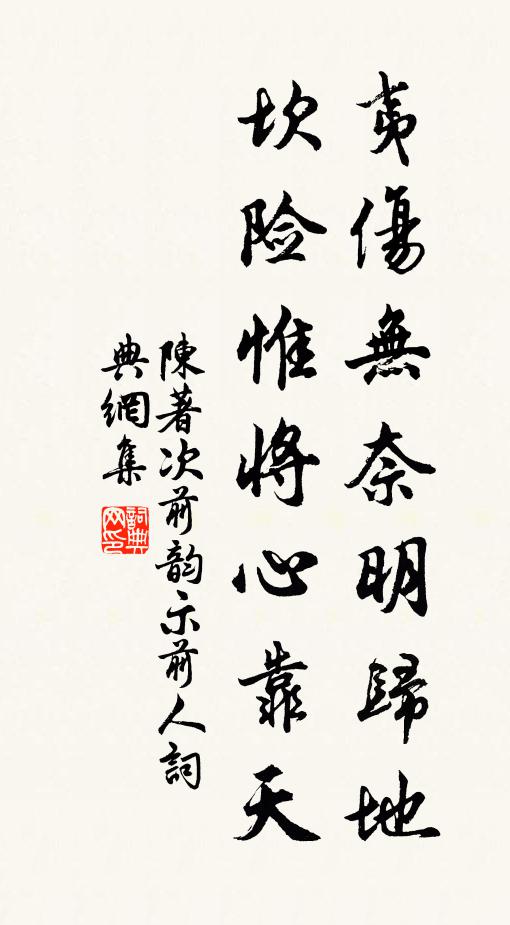 夷傷無奈明歸地
坎险惟將心靠天
陳著次前韵示前人詞
典網集
詞典網印